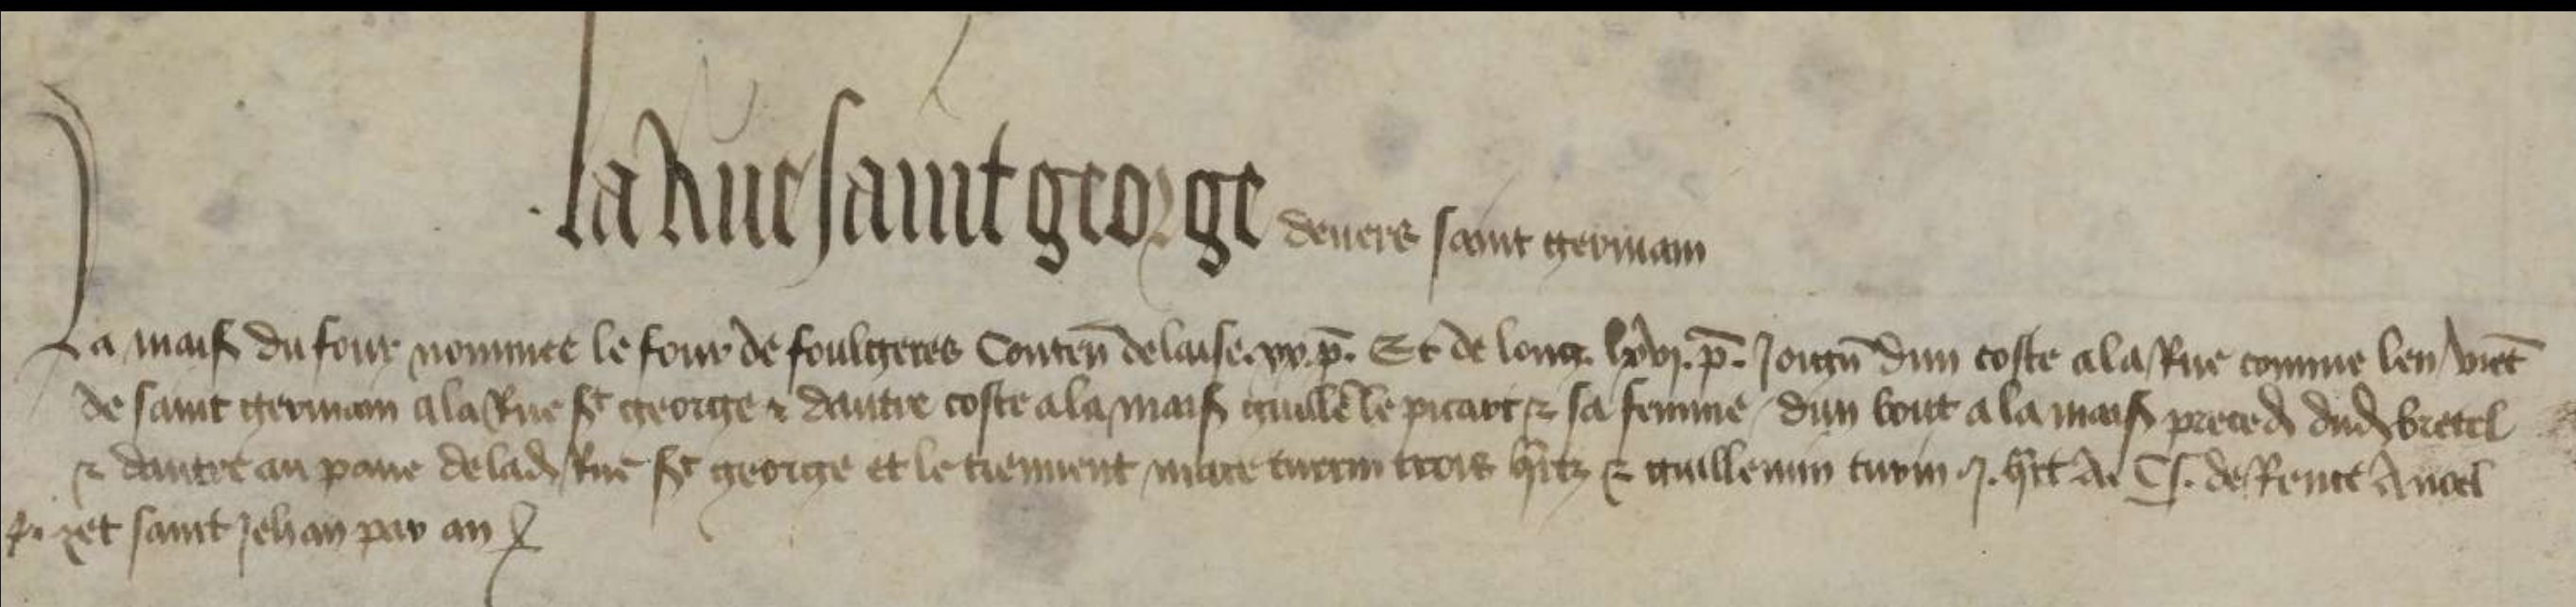 La Rue saint george devers saint germain
La mais du four nommee le four de foulgeres Conten de laise. xx. p. Et de long. lxvi. p. Joign dun coste a la Rue comme len viet
de saint germain a la Rue st george & dautre coste a la mais guille le picart & sa femme / dun bout a la mais preced dud bretel
& dautre au pave de lad Rue st george et le tiennent mace turin trois hrtz & guillemin turin .j. hrt A. C s. de Rente A noel
et saint Jehan par an